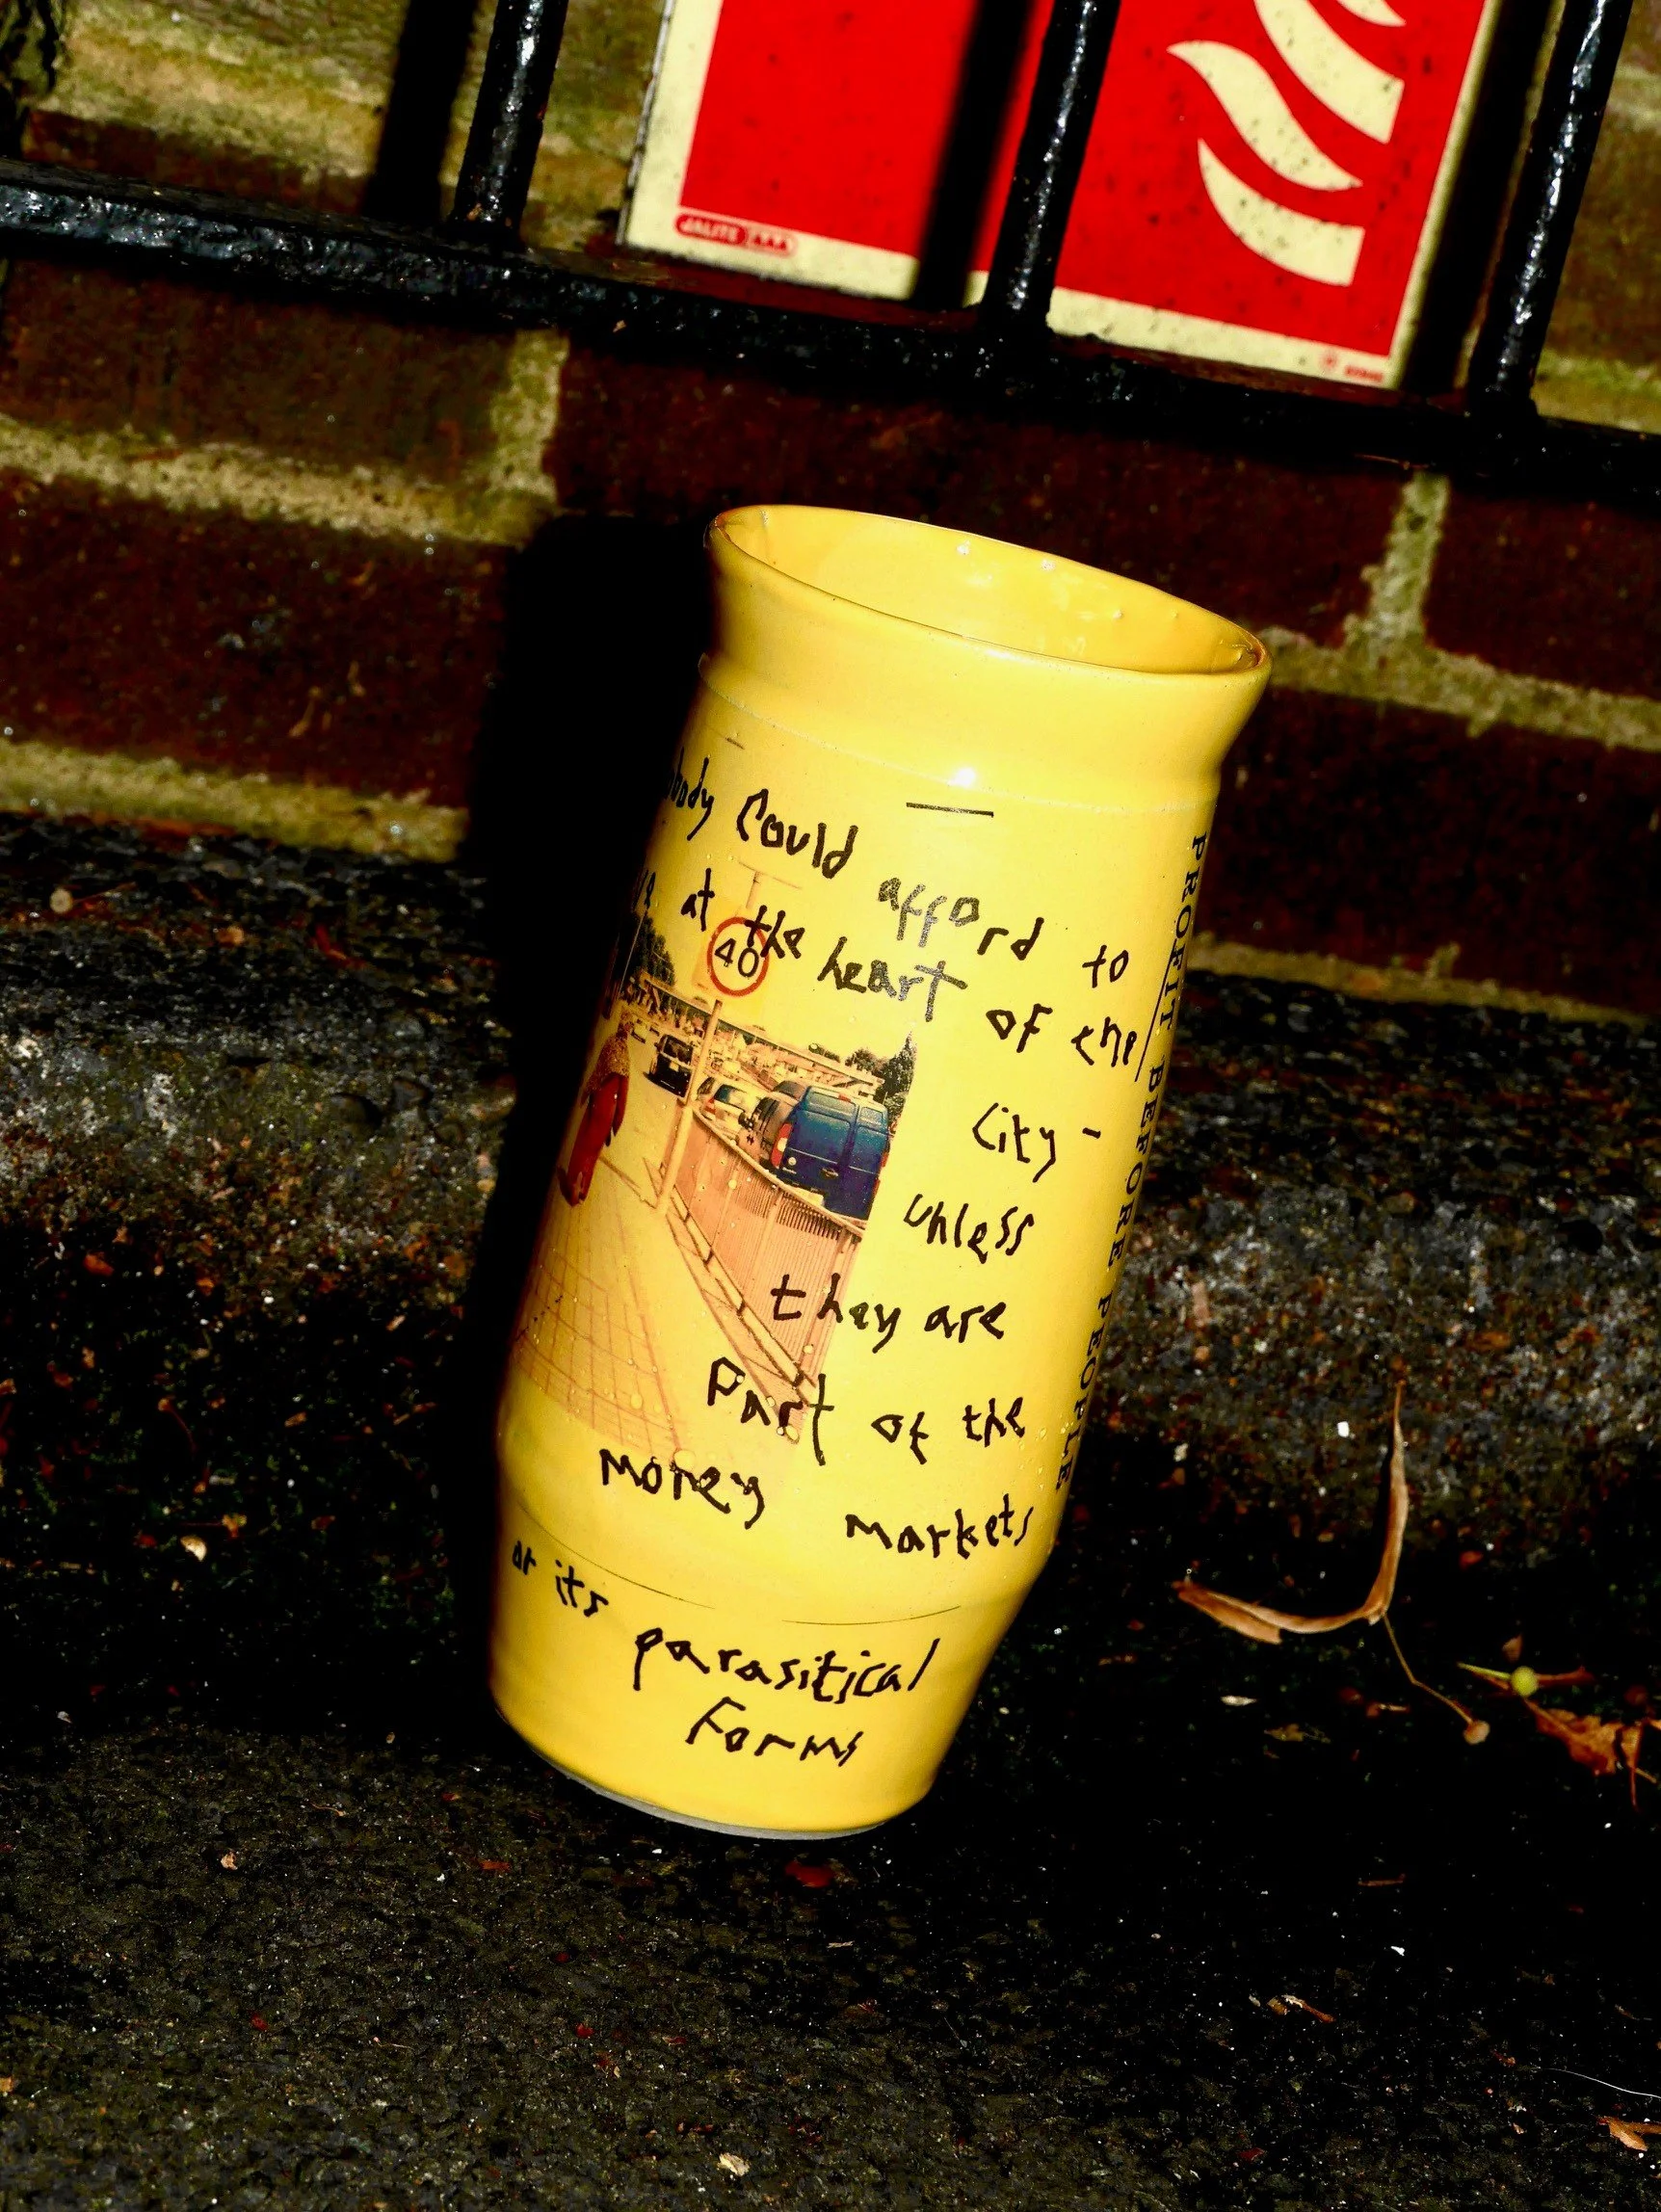 JALITE
body Could afford to
at the heart of the
City -
unless
they are
Part of the
money markets
or its parasitical
Forms
40
PROFIT BEFORE PEOPLE